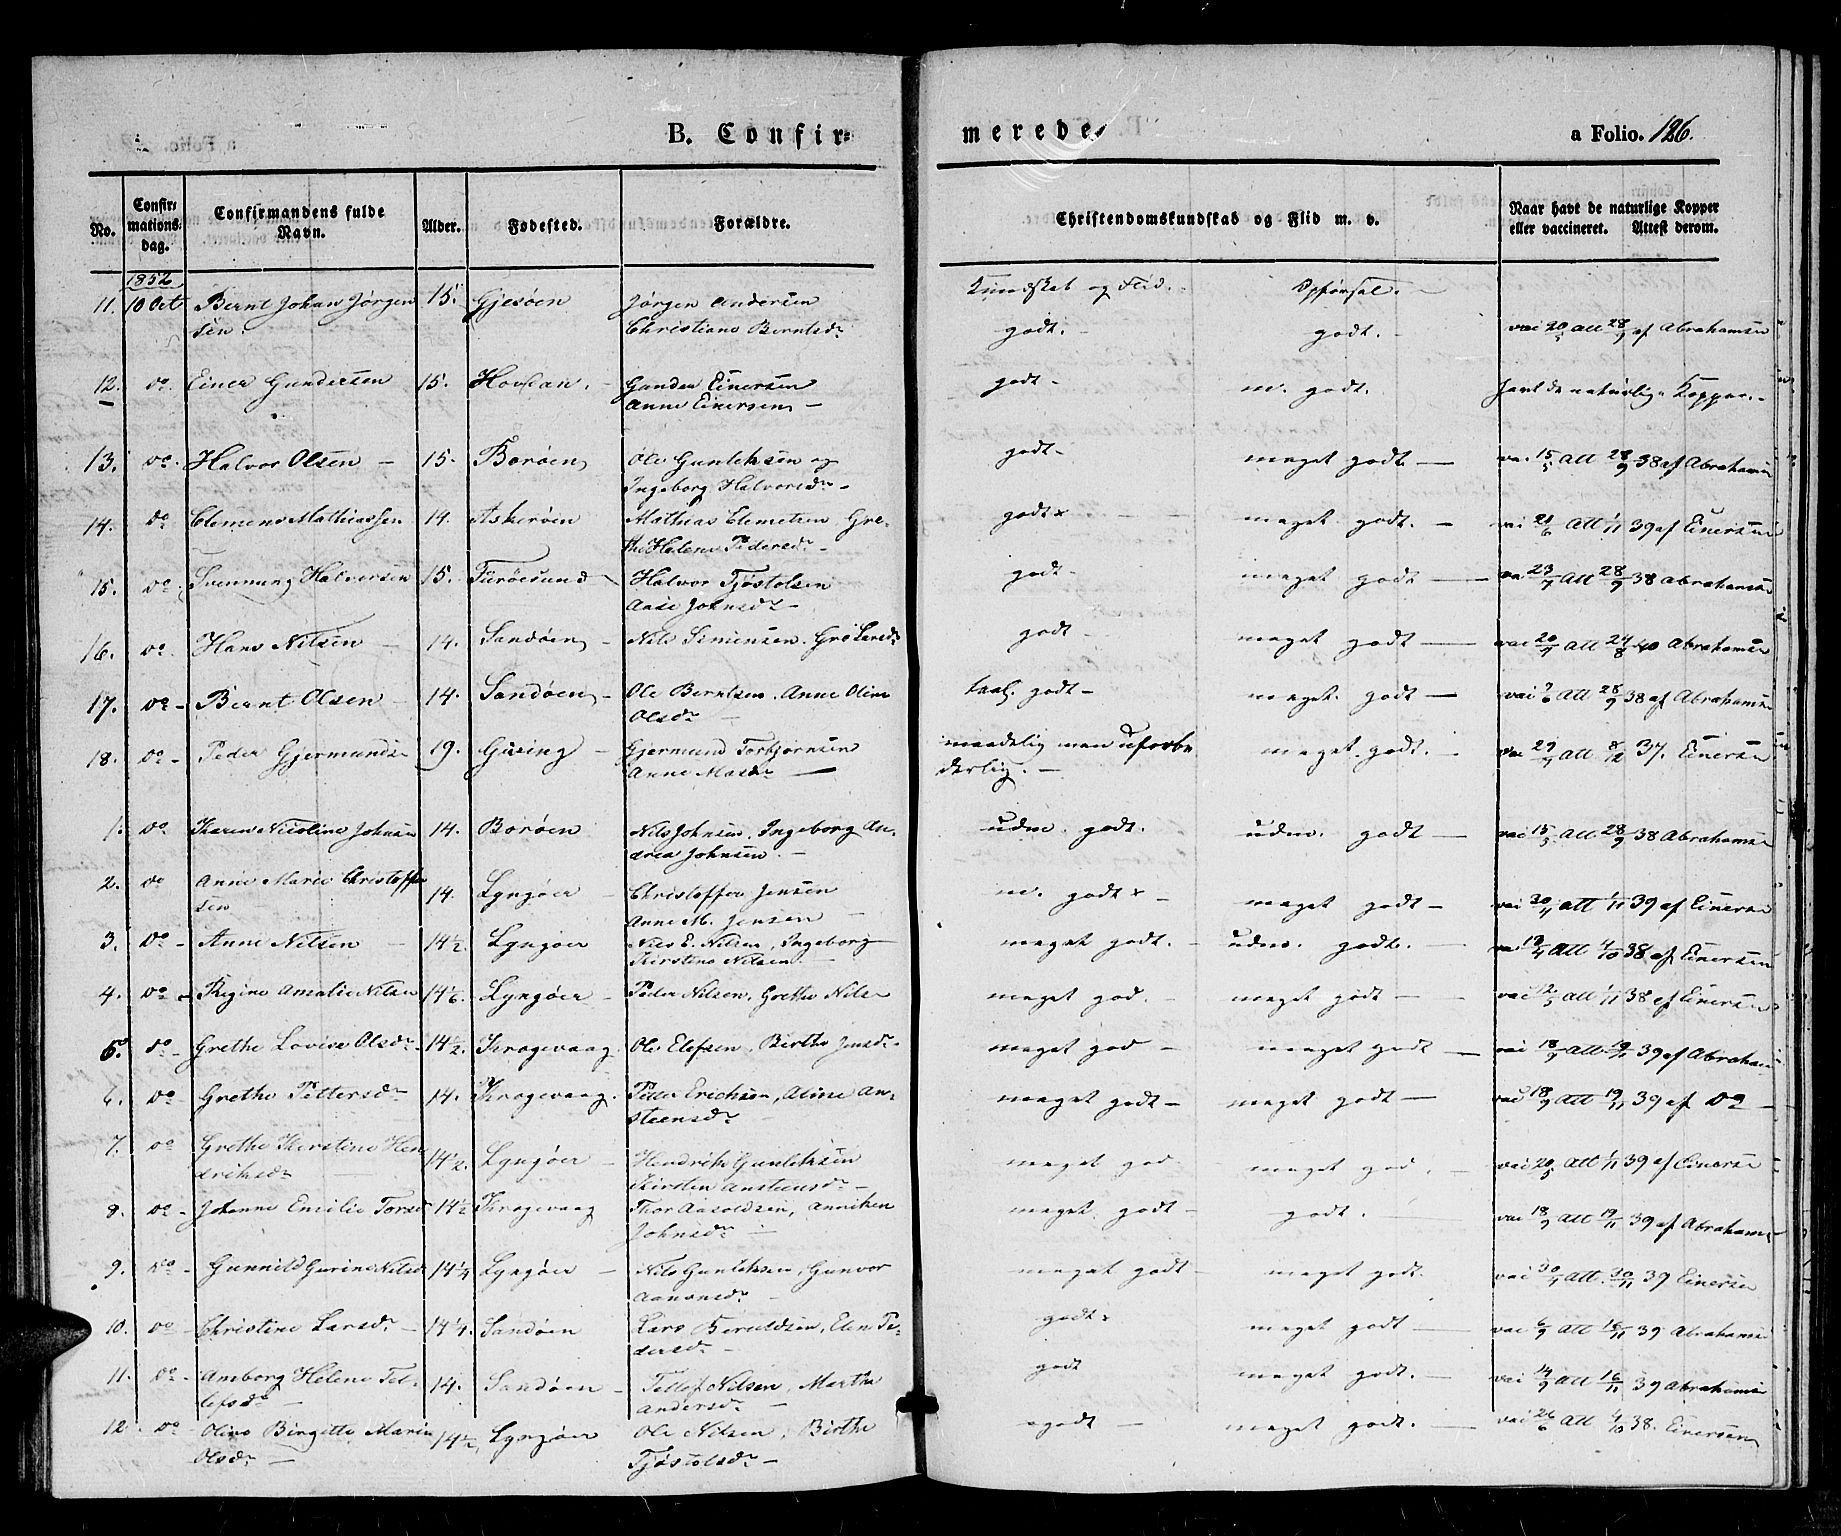 B. Confir=
meredes
a Folio. 126.
No.
Confir=
mations
dag.
Confirmandens fulde
Navn.
Alder.
Fødested.
Forældre.
Christendomskundskab og Flid m. v.
Naar havt de naturlige Kopper
eller vaccineret. Attest derom.
1852
Kundskab og Flid. Opførsel.
11. 10 Oct Bernt Johan Jørgen 15. Gjesøen Jørgen Andersen
sen. Christiane Berntsdr godt. godt. vac 20/5 att 28/9 af Abrahamsen
12. do. Einer Gundersen 15. Gunder Einersen godt m. godt. havt de naturlige Kopper.
Anne Einersen
13. do. Halvor Olsen 15. Borøen Ole Gunleksen og godt meget godt vac 15/5 Att 28/9 38 af Abrahamsen
Ingeborg Halvorsdr
14. do Clemens Mathiassen 14. Askerøen Mathias Clemetsen Gre- godt meget godt. vac 21/6 Att 1/11 39 af Einersen
the Helene Pedersdr
15. do Svennung Halvorsen 15. Furøesund Halvor Tjøstolsen godt meget godt vac 23/7 Att 28/9 38 Abrahamsen
Aase Johnsdr
16. do. Hans Nilsen 14. Sandøen Nils Simensen. Gro Larsdr godt meget godt vac 20/7 Att 24/8 40 Abrahamsen
17. do Bernt Olsen 14. Sandøen Ole Berntsen. Anne Oline taal. godt meget godt vac 9/6 Att 28/9 38 af Abrahamsen
Olsdr
18. do Peder Gjermunds 19. Gusing Gjermund Torbjørnsen maadelig men uforbe meget godt. vac 29/9 att 8/12 37. Einersen
Anne Masdr derlig.
1. do Karen Nicoline Johnsen 14. Borøen Nils Johnsen. Ingeborg An- udm. godt. udm. godt vac 15/5 Att 28/9 38 Abrahamsen
drea Johnsen
2. do Anne Marie Christoffer 14. Lyngøer Christoffer Jensen m. godt meget godt vac 30/11 att 1/11 39 af Einersen
sen Anne M. Jensen
3. do Anne Nilsen 14½. Lyngøer Nils E. Nilsen, Ingeborg meget godt. udm. godt. vac 12/4 Att 4/10 38 af Einersen
Kirstine Nilsen.
4. do Regine Amalie Nilsen 14 1/6. Lyngøer Peder Nilsen, Grethe Nilsen meget god. meget godt vac 12/5 att 1/11 38 af Einersen
5. do Grethe Lovise Olsdr 14½. Krogevaag. Ole Elefsen, Birthe Jensdr meget god meget godt vac 18/9 att 19/11 39 af Abraham
6. do Grethe Pettersdr 14. Krogevaag. Peder Erichsen, Aline An- meget godt meget godt vac 18/9 Att 19/11 39 af do
steensdr
7. do Grethe Kirstine Hen 14½. Lyngøer Hendrik Gunleksen meget god meget god. vac 20/5 Att 1/11 39 af Einersen
driksdr Kirsten Ansteensdr
8. do Johanne Emilie Torsdr 14½ Krogevaag Thor Aasoldsen, Anniken meget godt godt. vac 18/9 Att 19/11 39 af Abrahams
Johnsdr
9. do Gunnild Gurine Nilsdr 14¼ Lyngøer Nils Gunleksen, Gunvor meget godt meget godt. vac 30/7 att. 30/11 39 Einersen
Aanonsdr
10. do Christine Larsdr 14¼. Sandøen Lars Beruldsen, Elen Pe- godt meget godt vac 6/9 Att 16/11 39 Abrahamsen
dersdr
11. do Amborg Helene Tel- 14. Sandøen Tellef Nilsen, Marthe godt meget godt. vac 14/9 att 16/11 39 Abrahamsen
lefsdr Andersdr
12. do Oline Birgitte Marie 14½. Lyngøer Ole Nilsen, Birthe godt meget godt. vac 26/6 Att 4/10 38. Einersen
Olsdr Tjøstolsdr